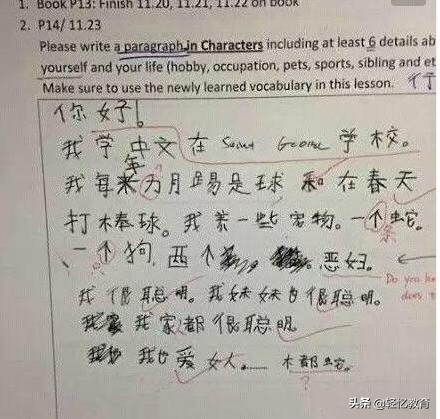 1. Book P13: Finish 11.20, 11.21, 11.22 on book
2. P14/ 11.23
Please write a paragraph in Characters including at least 6 details ab
yourself and your life (hobby, occupation, pets, sports, sibling and et
Make sure to use the newly learned vocabulary in this lesson.
你好!
我学中文在 Saint George 学校。
年
我每 万月踢足球 和 在春天
打棒球。我养一些宠物。一个蛇。
条
一个狗,西个 恶妇。
Do you
我很聪明。我妹妹也很聪明。
我家都很聪明
我也爱 都蛇。
?
头条 @轻忆教育